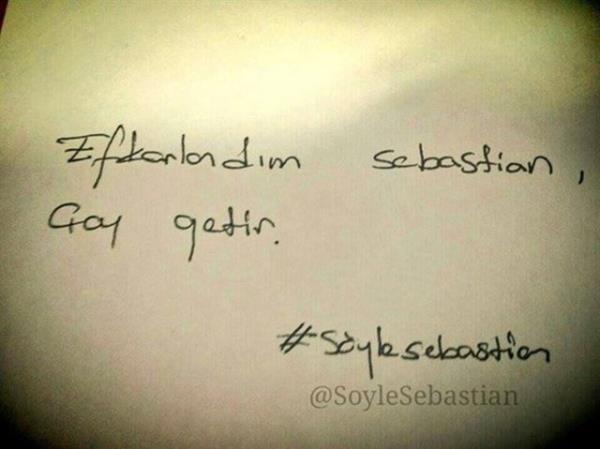 Efkarlandım sebastian,
Çay getir.
#Söylesebastian
@SoyleSebastian